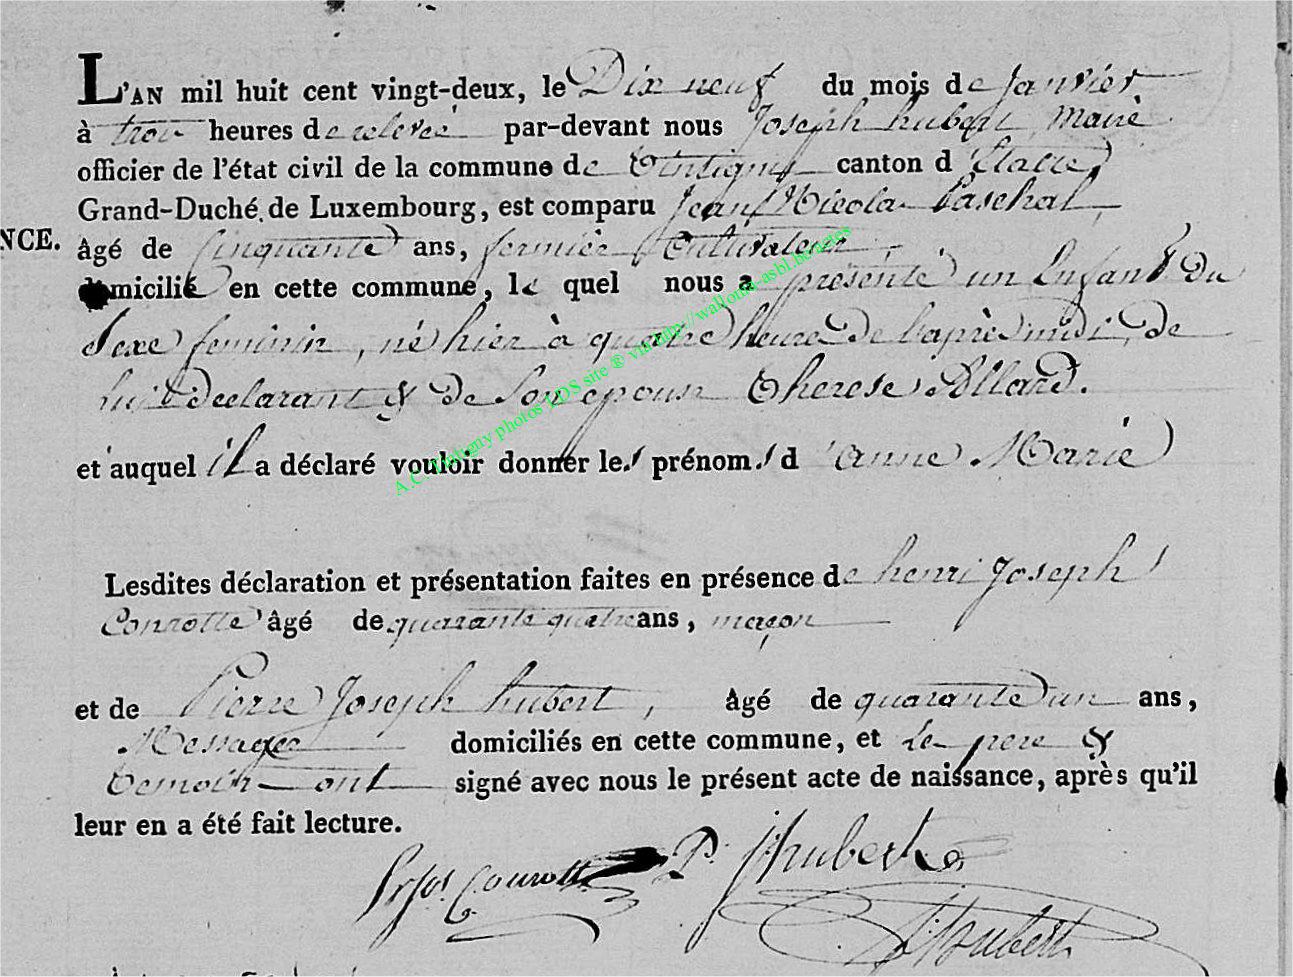 L'AN mil huit cent vingt-deux, le Dix neuf du mois de Janvier
à trois heures de relevée par-devant nous Joseph hubert, Maire
officier de l'état civil de la commune de Tintigny canton d'Etalle,
Grand-Duché de Luxembourg, est comparu Jean Nicolas Paschal,
NCE.
âgé de Cinquante ans, fermier Cultivateur,
domicilié en cette commune, le quel nous a présenté un Enfant Du
Sexe feminin, né hier à quatre heure De l'après midi, De
lui Declarant & De Son epouse Therese Allard.
et auquel il a déclaré vouloir donner les prénoms d'anne Marie
A.C. Tintigny photos LDS site ® via http://wallonia-asbl.be/actes
Lesdites déclaration et présentation faites en présence de henri Joseph
Conrotte âgé de quarante quatre ans, maçon
et de Pierre Joseph hubert, âgé de quarante un ans,
Messager domiciliés en cette commune, et Le pere &
temoin ont signé avec nous le présent acte de naissance, après qu'il
leur en a été fait lecture.
Conrotte P. J hubert
J Hubert